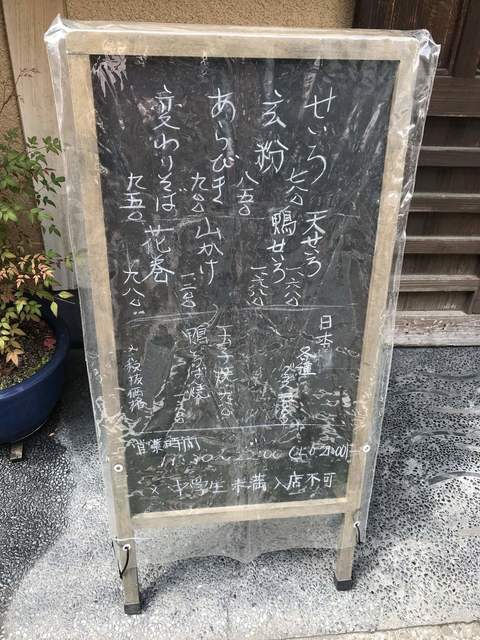 せいろ 七〇〇
玄粉 八五〇
あらびき 九〇〇
変わりそば 九五〇
天せいろ 一六〇〇
鴨せいろ
山かけ
花巻
日本酒
各種
玉子焼 六〇〇
鴨そば焼
※税抜価格
営業時間
(L.O 21:00)
※中学生未満入店不可